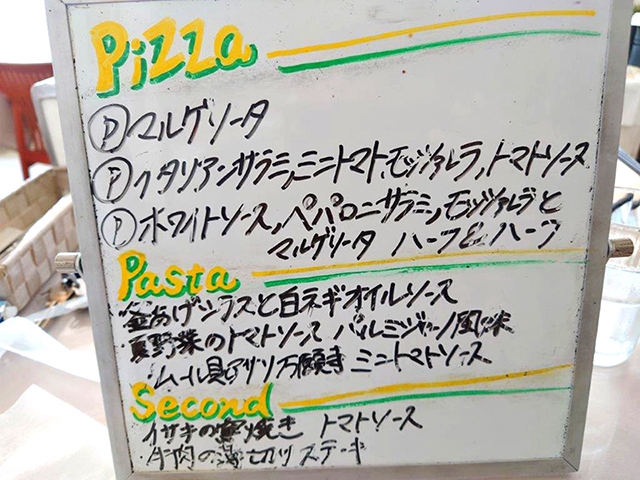 Pizza
Ⓟマルゲリータ
Ⓟイタリアンサラミ,ミニトマト,モッツァレラ,トマトソース
Ⓟホワイトソース,ペパロニサラミ,モッツァレラと
マルゲリータ ハーフ&ハーフ
Pasta
・釜あげシラスと白ネギオイルソース
・夏野菜のトマトソース パルミジャーノ風味
・ムール貝アサリ万願寺 ミニトマトソース
Second
・イサキの窯焼き トマトソース
・牛肉の薄切りステーキ